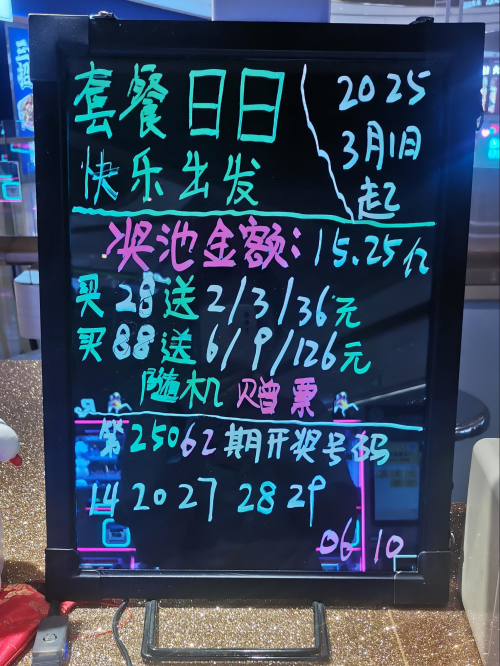 套餐日日
快乐出发
2025
3月1日
起
奖池金额:15.25亿
买28送2/3/36元
买88送6/9/126元
随机赠票
第25062期开奖号码
14 20 27 28 29
06 10